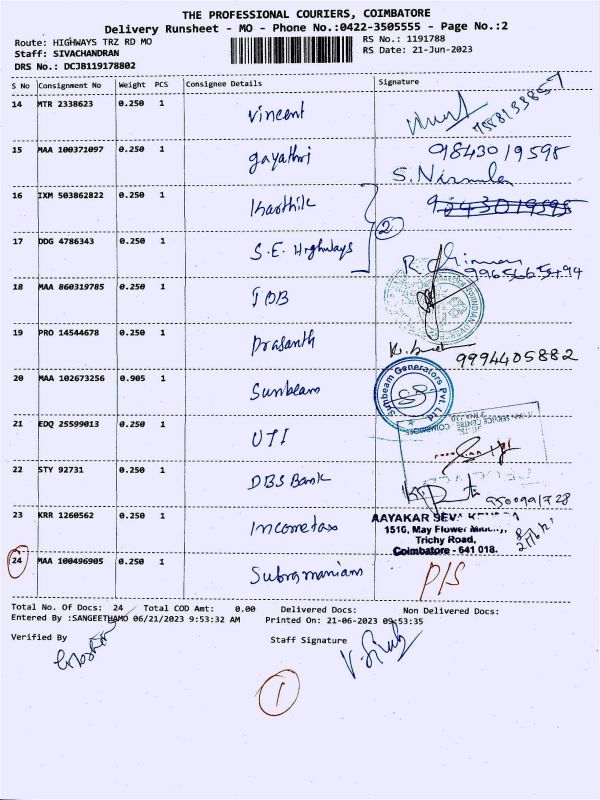 THE PROFESSIONAL COURIERS, COIMBATORE
Delivery Runsheet - MO - Phone No.:0422-3505555 - Page No.:2
Route: HIGHWAYS TRZ RD MO
RS No.: 1191788
Staff: SIVACHANDRAN
RS Date: 21-Jun-2023
DRS No.: DCJB119178802
S No Consignment No Weight PCS Consignee Details Signature
14 MTR 2338623 0.250 1 Vincent
15 MAA 100371097 0.250 1 gayathri 9843019598
S. Nirmala
16 IXM 503862822 0.250 1 Karthik
2
17 DDG 4786343 0.250 1 S.E. Highways
9965665494
18 MAA 860319785 0.250 1 IOB
19 PRO 14544678 0.250 1 Prasanth 9994405882
20 MAA 102673256 0.905 1 Sunbeam Sunbeam Generators Pvt. Ltd
21 EDQ 25599013 0.250 1 UTI
22 STY 92731 0.250 1 DBS Bank
23 KRR 1260562 0.250 1 Incometax AAYAKAR SEVA
1510, May Flower
Trichy Road,
Coimbatore - 641 018.
24 MAA 100496905 0.250 1 Subramaniam P/S
Total No. Of Docs: 24 Total COD Amt: 0.00 Delivered Docs: Non Delivered Docs:
Entered By :SANGEETHAMO 06/21/2023 9:53:32 AM Printed On: 21-06-2023 09:53:35
Verified By Staff Signature
1